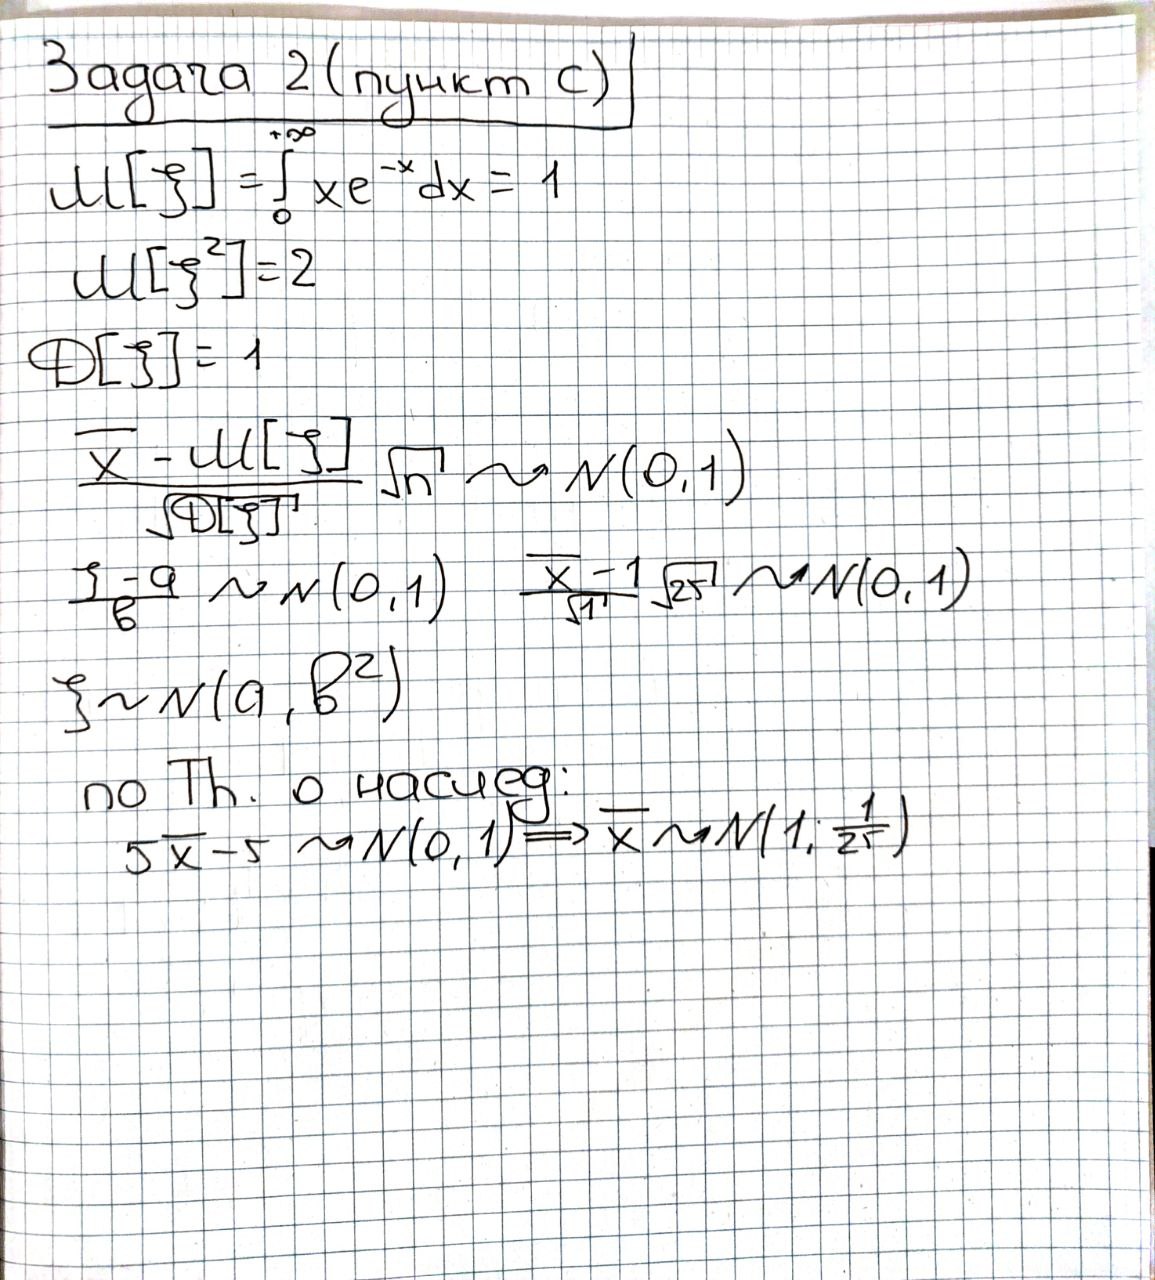 Задача 2 (пункт c)
M[ξ] = ∫₀^{+∞} xe^{-x}dx = 1
M[ξ²] = 2
D[ξ] = 1
(x̄ - M[ξ])/√D[ξ] √n ⇝ N(0,1)
(ξ-a)/b ~ N(0,1) (x̄-1)/√1 √25 ⇝ N(0,1)
ξ ~ N(a, b²)
по Th. о наслед:
5x̄-5 ⇝ N(0,1) ⟹ x̄ ⇝ N(1; 1/25)